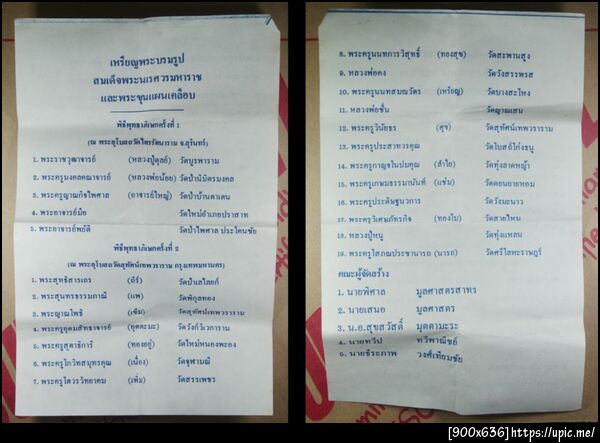 เหรียญพระบรมรูป
สมเด็จพระนเรศวรมหาราช
และพระขุนแผนเคลือบ
พิธีพุทธาภิเษกครั้งที่ 1
(ณ พระอุโบสถวัดไตรรัตนาราม จ.สุรินทร์)
1. พระราชวุฒาจารย์ (หลวงปู่ดุลย์) วัดบูรพาราม
2. พระครูมงคลคณาจารย์ (หลวงพ่อน้อย) วัดป่านิมิตรมงคล
3. พระครูญาณกิจไพศาล (อาจารย์ใหญ่) วัดป่าบ้านตาเดน
4. พระอาจารย์มือ วัดใหม่อำเภอปราสาท
5. พระอาจารย์พยัติ วัดป่าไพศาล ประโคนชัย
พิธีพุทธาภิเษกครั้งที่ 2
(ณ พระอุโบสถวัดสุทัศน์เทพวราราม กรุงเทพมหานคร)
1. พระสุทธิสารเถร (ถิร์) วัดป่าเลไลยก์
2. พระสุนทรธรรมภาณี (แพ) วัดพิกุลทอง
3. พระญาณโพธิ (เข็ม) วัดสุทัศน์เทพวราราม
4. พระครูอุดมสิทธาจารย์ (อุตตะมะ) วัดวังก์วิเวการาม
5. พระครูสุตาธิการี (ทองอยู่) วัดใหม่หนองพะอง
6. พระครูโกวิทสมุทรคุณ (เนื่อง) วัดจุฬามณี
7. พระครูไตวรวิทยาคม (เพิ่ม) วัดสรรเพชร
8. พระครูนนทการวิสุทธิ์ (ทองสุข) วัดสะพานสูง
9. หลวงพ่อคง วัดวังสรรพรส
10. พระครูนนทสมณวัตร (เหรียญ) วัดบางสะโหง
11. หลวงพ่อชื่น วัดญาณเสน
12. พระครูวินัยธร (ศุข) วัดสุทัศน์เทพวราราม
13. พระครูประสาทวรคุณ วัดโบสถ์โก่งธนู
14. พระครูกาญจโนปมคุณ (ลำใย) วัดทุ่งลาดหญ้า
15. พระครูเกษมธรรมนานันท์ (แช่ม) วัดดอนยายหอม
16. พระครูประดิษฐนวการ วัดวังมะนาว
17. พระครูวิเศษภัทรกิจ (ทองใบ) วัดสายไหม
18. หลวงปู่หนู วัดทุ่งแหลม
19. พระครูโสภณประชานารถ (นารถ) วัดศรีโลหะราษฎร์
คณะผู้จัดสร้าง
1. นายพิศาล มูลศาสตรสาทร
2. นายเสนอ มูลศาสตร์
3. น.อ.สุขสวัสดิ์ มุตตามะระ
4. นายทวีป ทวีพาณิชย์
5. นายธีระภาพ วงศ์เทียมชัย
[900x636]https://upic.me/